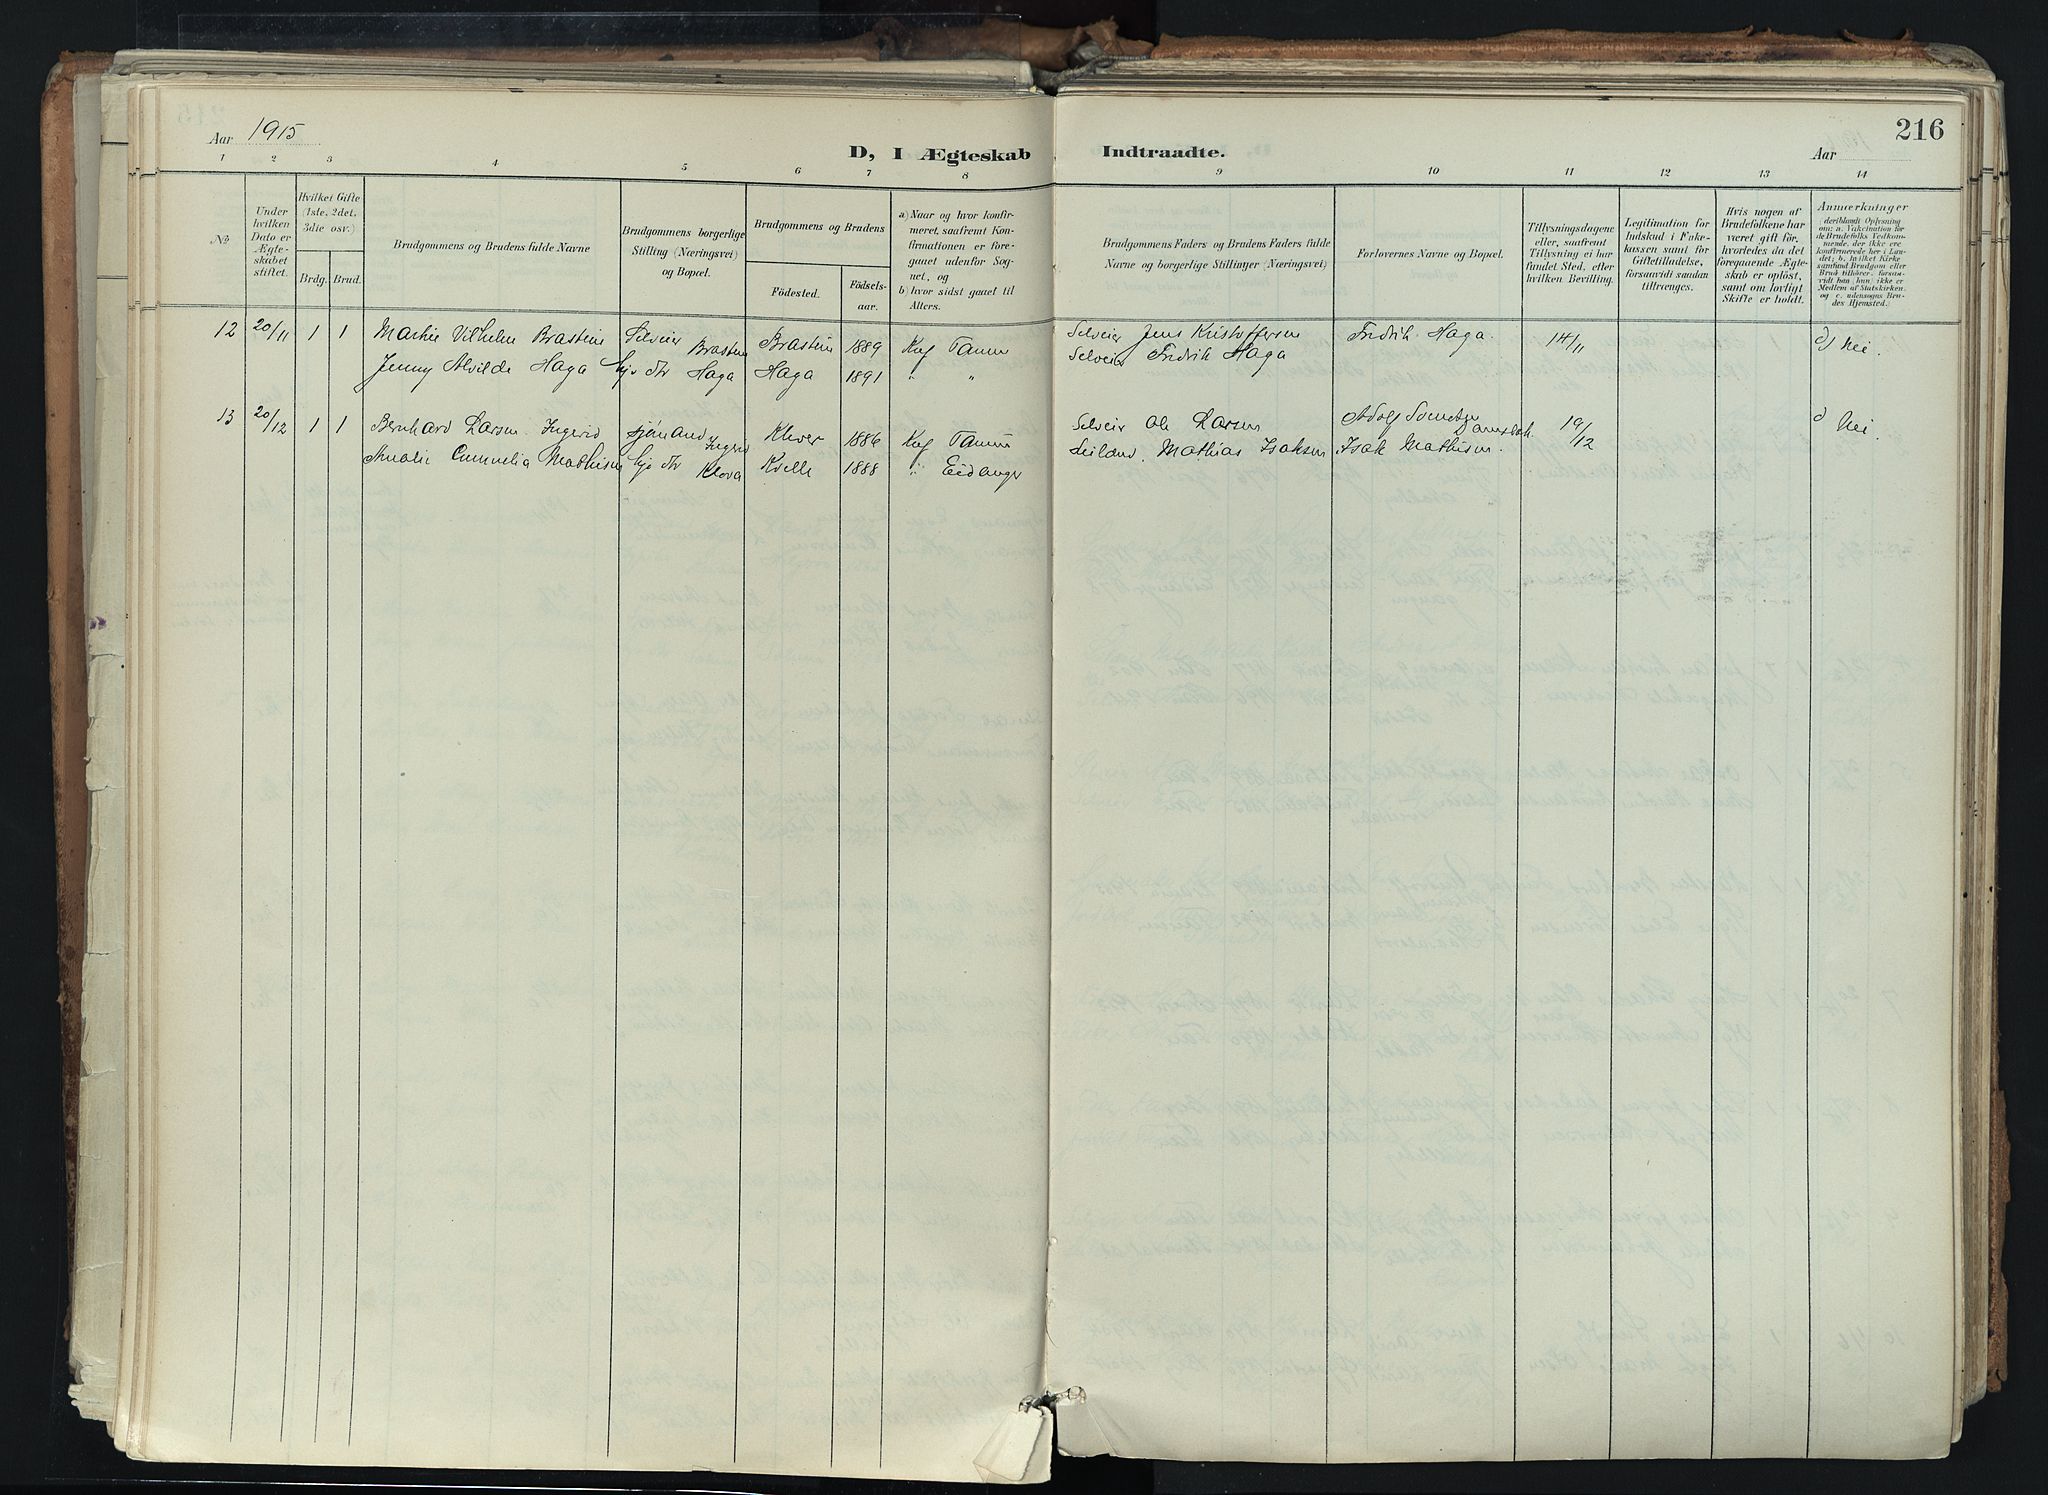 216
Aar 1915
D, I Ægteskab Indtraadte.
Aar
1 2 3 4 5 6 7 8 9 10 11 12 13 14
No
Under hvilken Dato er Ægteskabet stiftet.
Hvilket Gifte (1ste, 2det, 3die osv.)
Brdg. Brud.
Brudgommens og Brudens fulde Navne
Brudgommens borgerlige Stilling (Næringsvei) og Bopæl.
Brudgommens og Brudens
Fødested.
Fødselsaar.
a) Naar og hvor konfirmeret, saafremt Konfirmationen er foregaaet udenfor Sognet, og
b) hvor sidst gaaet til Alters.
Brudgommens Faders og Brudens Faders fulde Navne og borgerlige Stillinger (Næringsvei)
Forlovernes Navne og Bopæl.
Tillysningsdagene eller, saafremt Tillysning ei har fundet Sted, efter hvilken Bevilling.
Legitimation for Indskud i Enkekassen samt for Giftetilladelse, forsaavidt saadan tiltrænges.
Hvis nogen af Brudefolkene har været gift før, hvorledes da det foregaaende Ægteskab er opløst, samt om lovligt Skifte er holdt.
Anmærkninger
(deriblandt Oplysning om: a. Vakcination for de Brudefolks Vedkommende, der ikke ere konfirmerede her i Landet; b. hvilket Kirkesamfund Brudgom eller Brud tilhører, forsaavidt han (hun) ikke er Medlem af Statskirken, og c. udensogns Brudes Hjemsted.
12 20/11 1 1 Vilhelm Brastein Selveier Brastein Brastein 1889 Kuf Tanum Selveier Jens Kristoffersen Fredrik Haga. 14/11 Nei.
Jenny Alvilde Haga Haga Haga 1891 " " Selveier Fredrik Haga
13 20/12 1 1 Bernhard Larsen Ingerid sjømand Klever 1886 Kuf Tanum Selveier Ole Larsen Adolf 19/12 Nei.
Amalie Mathisen Kvelle 1888 " Eidanger Mathias Isaksen Isak Mathisen.